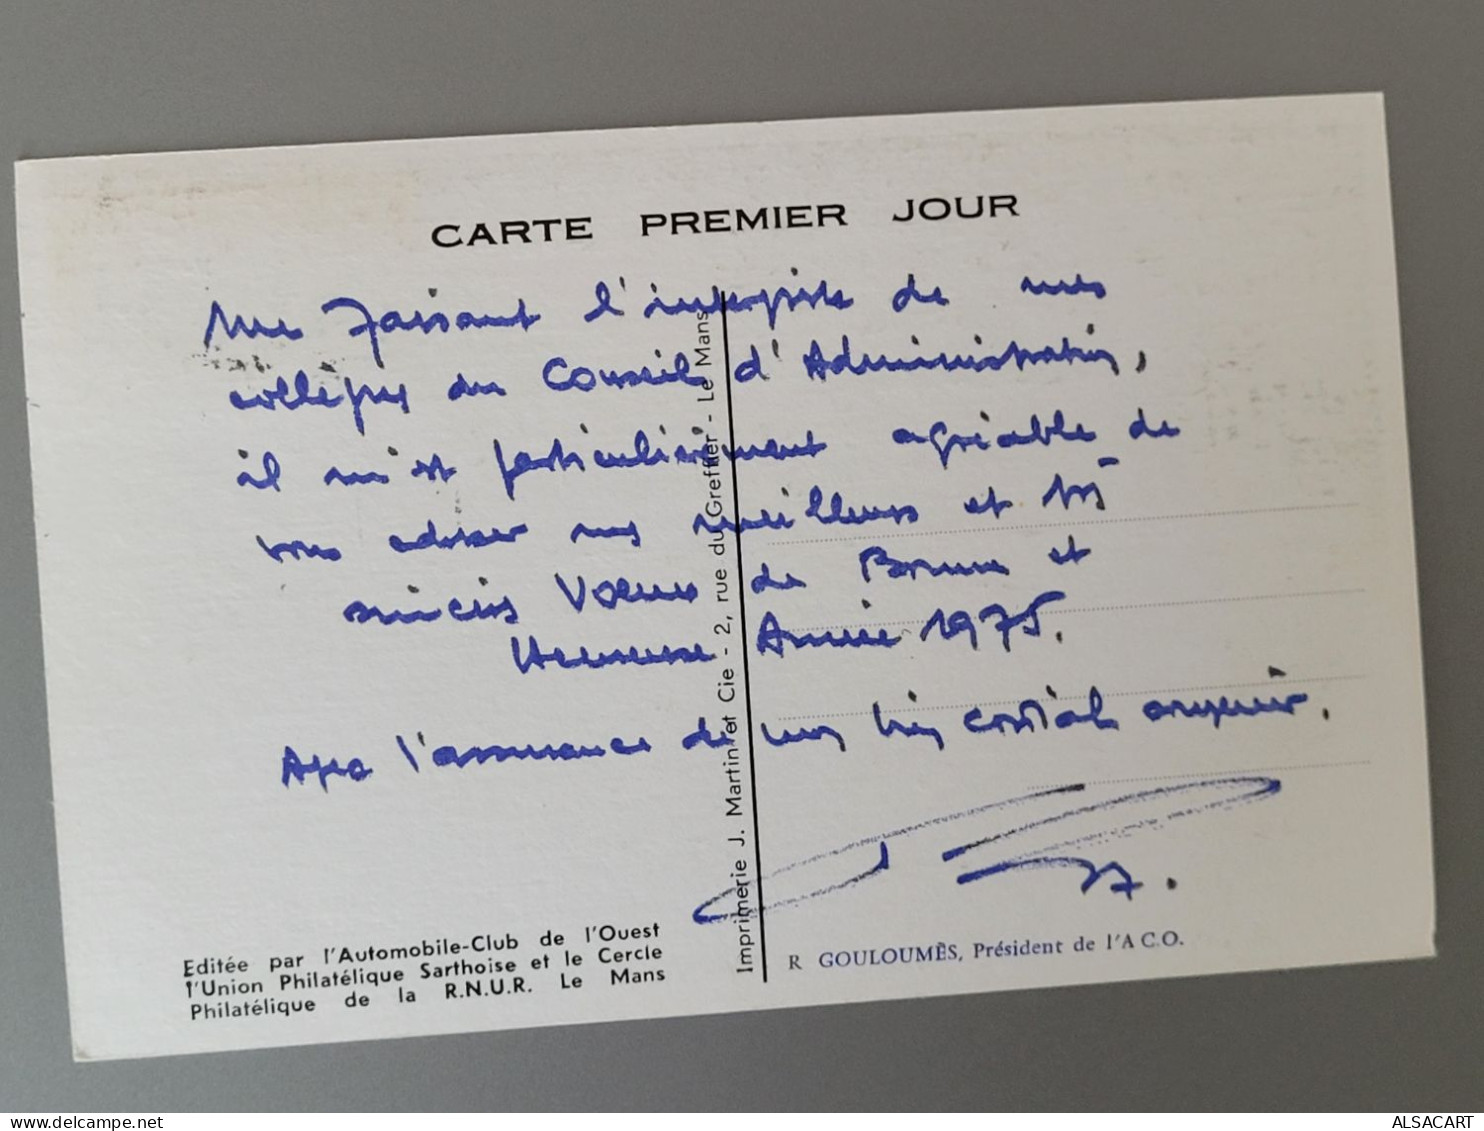 CARTE PREMIER JOUR
Me faisant l'interprète de mes
collègues du Conseil d'Administration,
il m'est particulièrement agréable de
vous adresser mes meilleurs et très
sincères Vœux de Bonne et
Heureuse Année 1975.
Avec l'assurance de mon bien cordial souvenir.
Imprimerie J. Martin et Cie - 2, rue du Greffier - Le Mans
Editée par l'Automobile-Club de l'Ouest
l'Union Philatélique Sarthoise et le Cercle
Philatélique de la R.N.U.R. Le Mans
R GOULOUMÈS, Président de l'A C.O.
ALSACART